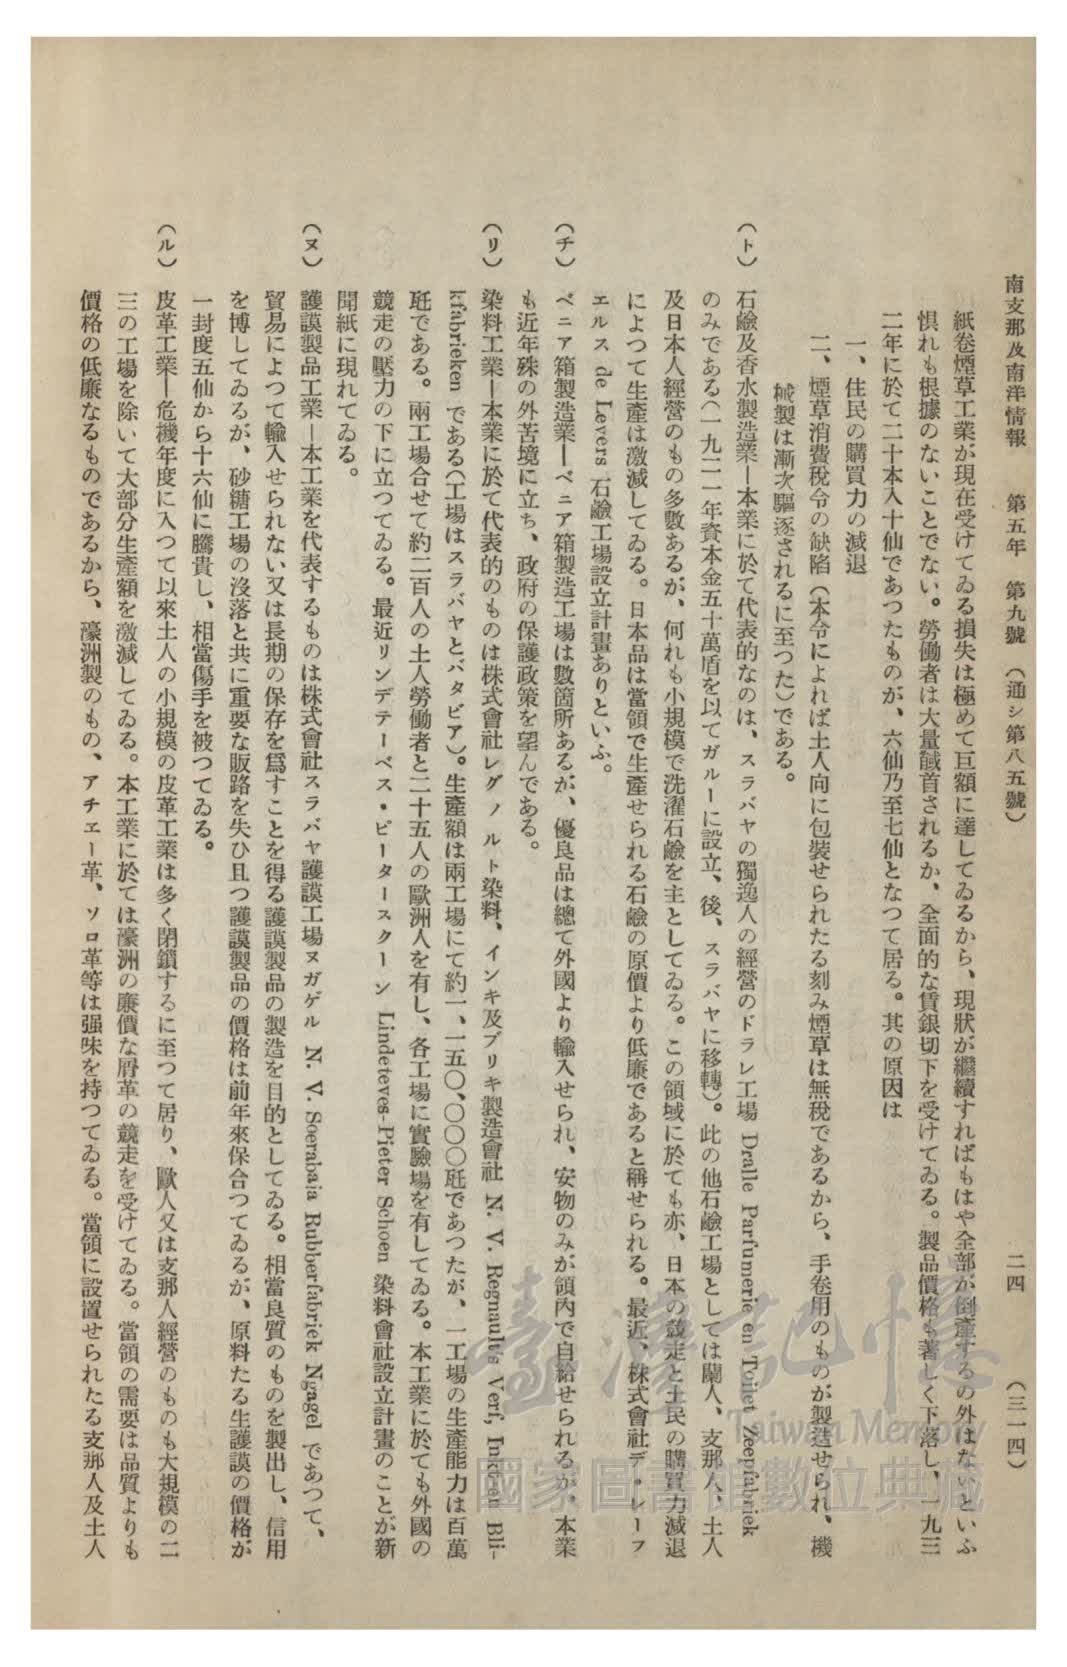 南支那及南洋情報　第五年　第九號　（通シ第八五號）　二四　（三一四）
紙卷煙草工業が現在受けてゐる損失は極めて巨額に達してゐるから、現狀が繼續すればもはや全部が倒產するの外はないといふ
惧れも根據のないことでない。勞働者は大量馘首されるか、全面的な賃銀切下を受けてゐる。製品價格も著しく下落し、一九三
二年に於て二十本入十仙であつたものが、六仙乃至七仙となつて居る。其の原因は
一、住民の購買力の減退
二、煙草消費稅令の缺陷（本令によれば土人向に包裝せられたる刻み煙草は無稅であるから、手卷用のものが製造せられ、機
械製は漸次驅逐されるに至つた）である。
（ト）　石鹼及香水製造業―本業に於て代表的なのは、スラバヤの獨逸人の經營のドラレ工場 Dralle Parfumerie en Toilet Zeepfabriek
のみである（一九二一年資本金五十萬盾を以てガルーに設立、後、スラバヤに移轉）。此の他石鹼工場としては蘭人、支那人、土人
及日本人經營のもの多數あるが、何れも小規模で洗濯石鹼を主としてゐる。この領域に於ても亦、日本の競走と土民の購買力減退
によつて生產は激減してゐる。日本品は當領で生產せられる石鹼の原價より低廉であると稱せられる。最近、株式會社デ・レーフ
エルス de Levers 石鹼工場設立計畫ありといふ。
（チ）　ベニア箱製造業―ベニア箱製造工場は數箇所あるが、優良品は總て外國より輸入せられ、安物のみが領內で自給せられるが、本業
も近年殊の外苦境に立ち、政府の保護政策を望んでゐる。
（リ）　染料工業―本業に於て代表的のものは株式會社レグノルト染料、インキ及ブリキ製造會社 N. V. Regnault's Verf, Inkt-en Bli-
kfabrieken である（工場はスラバヤとバタビア）。生產額は兩工場にて約一、一五〇、〇〇〇瓩であつたが、一工場の生產能力は百萬
瓩である。兩工場合せて約二百人の土人勞働者と二十五人の歐洲人を有し、各工場に實驗場を有してゐる。本工業に於ても外國の
競走の壓力の下に立つてゐる。最近リンデテーベス・ピータースクーン Lindeteves-Pieter Schoen 染料會社設立計畫のことが新
聞紙に現れてゐる。
（ヌ）　護謨製品工業―本工業を代表するものは株式會社スラバヤ護謨工場ヌガゲル N. V. Soerabaja Rubberfabriek Ngagel であつて、
貿易によつて輸入せられない又は長期の保存を爲すことを得る護謨製品の製造を目的としてゐる。相當良質のものを製出し、信用
を博してゐるが、砂糖工場の沒落と共に重要な販路を失ひ且つ護謨製品の價格は前年來保合つてゐるが、原料たる生護謨の價格が
一封度五仙から十六仙に騰貴し、相當傷手を被つてゐる。
（ル）　皮革工業―危機年度に入つて以來土人の小規模の皮革工業は多く閉鎖するに至つて居り、歐人又は支那人經營のものも大規模の二
三の工場を除いて大部分生產額を激減してゐる。本工業に於ては濠洲の廉價な屑革の競走を受けてゐる。當領の需要は品質よりも
價格の低廉なるものであるから、濠洲製のもの、アチエー革、ソロ革等は强味を持つてゐる。當領に設置せられたる支那人及土人
臺灣記憶
Taiwan Memory
國家圖書館數位典藏